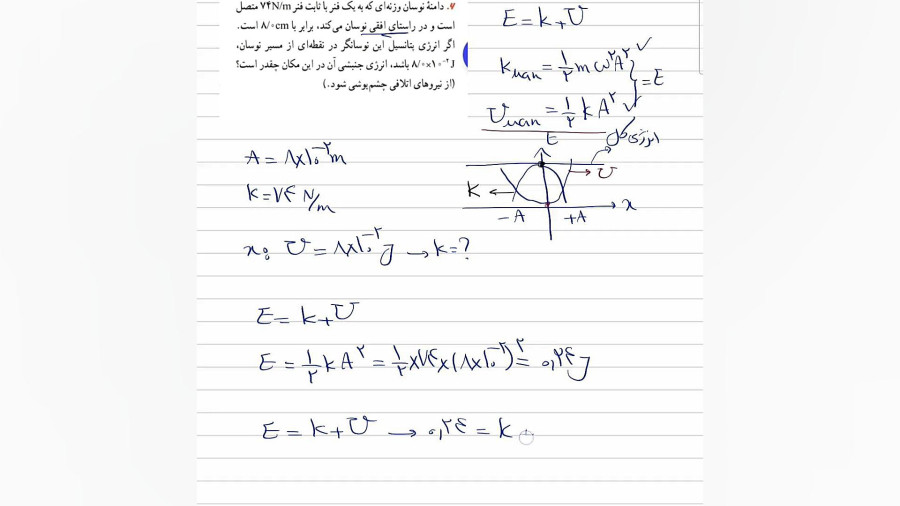 ۷. دامنهٔ نوسان وزنه‌ای که به یک فنر با ثابت فنر ۷۴N/m متصل
است و در راستای افقی نوسان می‌کند، برابر با ۸/۰cm است.
اگر انرژی پتانسیل این نوسانگر در نقطه‌ای از مسیر نوسان،
۸/۰×۱۰⁻²J باشد، انرژی جنبشی آن در این مکان چقدر است؟
(از نیروهای اتلافی چشم‌پوشی شود.)
E = k + U
k max = ۱/۲ m ω² A² ✓
= E
U max = ۱/۲ k A² ✓
انرژی کل
E
U
K
-A +A x
A = ۸×۱۰⁻² m
k = ۷۴ N/m
x: U = ۸×۱۰⁻² J → k = ?
E = k + U
E = ۱/۲ k A² = ۱/۲ × ۷۴ × (۸×۱۰⁻²)² = ۰,۲۴ J
E = k + U → ۰,۲۴ = k